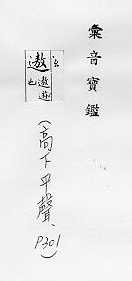 彙音寶鑑
遨
遨遊
也
(高下平聲、P301)